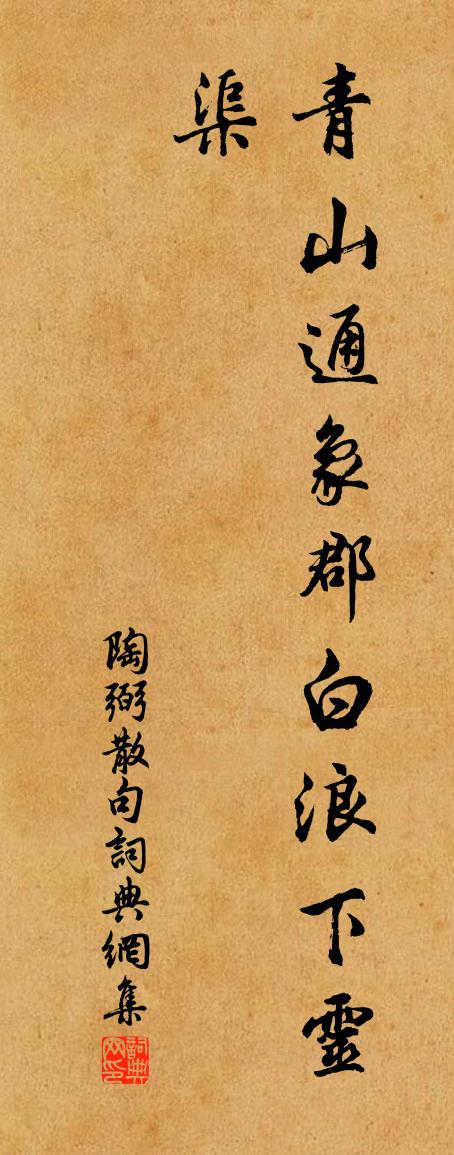 青山通象郡白浪下靈
渠
陶弼散句詞典網集
詞典網印